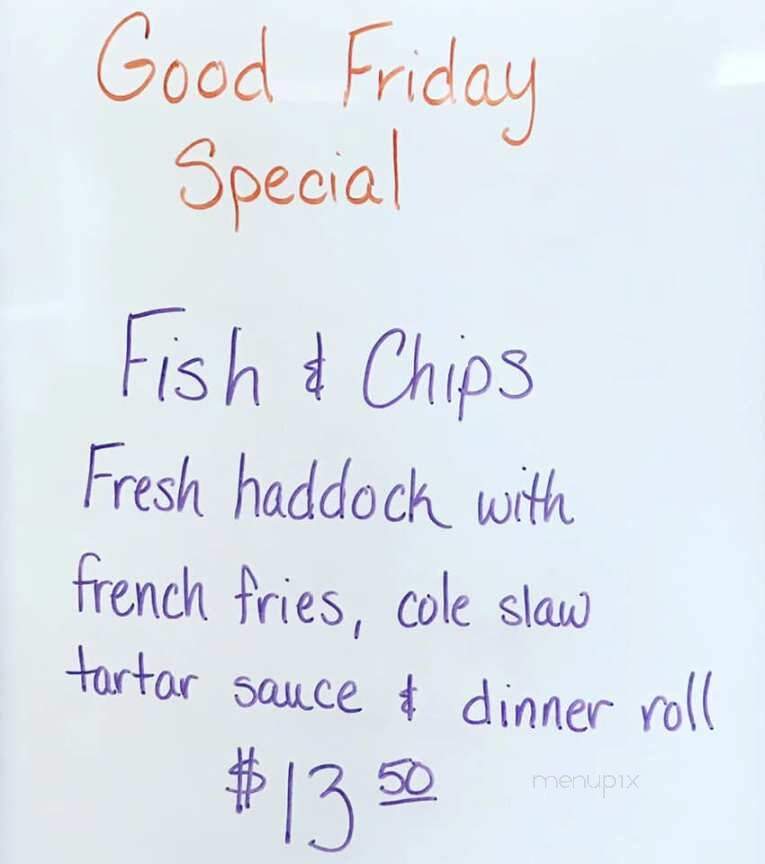 Good Friday
Special
Fish & Chips
Fresh haddock with
french fries, cole slaw
tartar sauce & dinner roll
$13.50
menupix